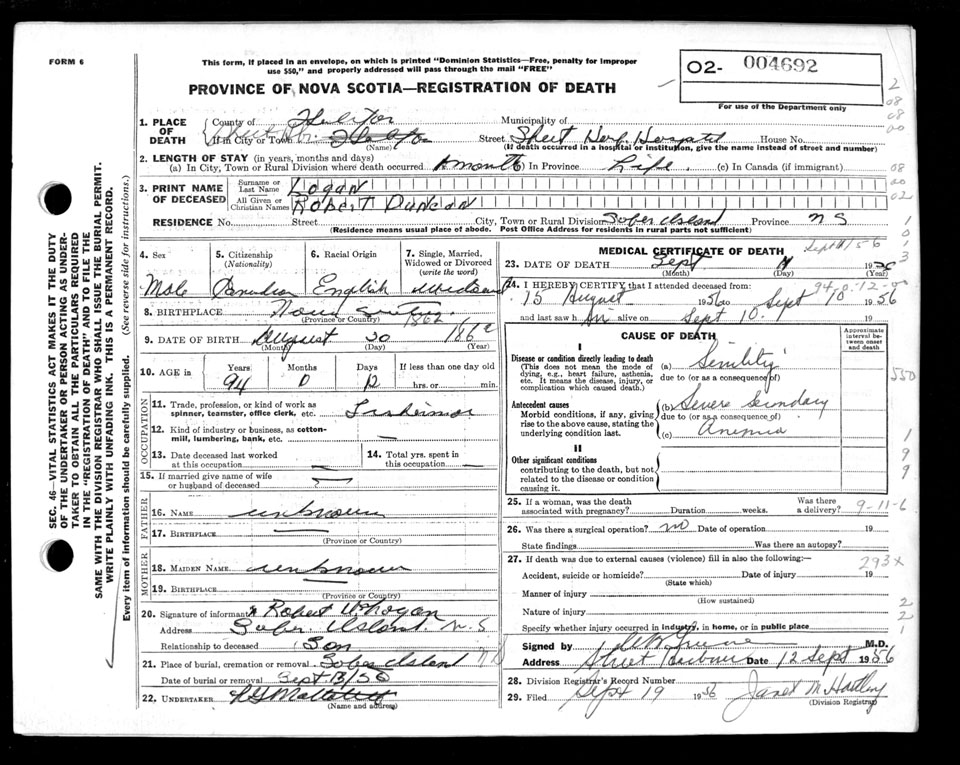 FORM 6
This form, if placed in an envelope, on which is printed "Dominion Statistics—Free, penalty for improper
use $50," and properly addressed will pass through the mail "FREE"
02- 004692
For use of the Department only
PROVINCE OF NOVA SCOTIA—REGISTRATION OF DEATH
1. PLACE OF DEATH
County of Halifax Municipality of
If in City or Town Halifax (Name) Street Sheet Harb. Hospital House No.
(If death occurred in a hospital or institution, give the name instead of street and number)
2. LENGTH OF STAY (in years, months and days)
(a) In City, Town or Rural Division where death occurred month (b) In Province Life (c) In Canada (if immigrant)
3. PRINT NAME OF DECEASED
Surname or Last Name Logan
All Given or Christian Names Robert Duncan
RESIDENCE No. Street City, Town or Rural Division Sober Island Province N S
(Residence means usual place of abode. Post Office Address for residents in rural parts not sufficient)
4. Sex Male
5. Citizenship (Nationality) Canadian
6. Racial Origin English
7. Single, Married, Widowed or Divorced (write the word)
8. BIRTHPLACE Nova Scotia
(Province or Country)
1862
9. DATE OF BIRTH August 30
(Month) (Day) (Year)
10. AGE in Years Months Days If less than one day old
94 0 12 hrs. or min.
OCCUPATION
11. Trade, profession, or kind of work as spinner, teamster, office clerk, etc. Fisherman
12. Kind of industry or business, as cotton-mill, lumbering, bank, etc. —
13. Date deceased last worked at this occupation —
14. Total yrs. spent in this occupation —
15. If married give name of wife or husband of deceased
FATHER
16. NAME unknown
17. BIRTHPLACE
(Province or Country)
MOTHER
18. MAIDEN NAME unknown
19. BIRTHPLACE
(Province or Country)
20. Signature of informant Robert Logan
Address Sober Island N. S
Relationship to deceased Son
21. Place of burial, cremation or removal Sober Island
Date of burial or removal Sept 13/56
22. UNDERTAKER
(Name and address)
MEDICAL CERTIFICATE OF DEATH
23. DATE OF DEATH Sept 1956
(Month) (Day) (Year)
24. I HEREBY CERTIFY that I attended deceased from:
15 August 1956 to Sept 10 1956
and last saw him alive on Sept 10. 19
CAUSE OF DEATH
Approximate interval between onset and death
I
Disease or condition directly leading to death
(This does not mean the mode of dying, e.g., heart failure, asthenia, etc. It means the disease, injury, or complication which caused death.)
(a) Senility
due to (or as a consequence of)
Antecedent causes
Morbid conditions, if any, giving rise to the above cause, stating the underlying condition last.
(b) Severe Secondary
due to (or as a consequence of)
(c) Anemia
II
Other significant conditions
contributing to the death, but not related to the disease or condition causing it.
550
25. If a woman, was the death associated with pregnancy? Duration weeks. Was there a delivery?
9-11-6
26. Was there a surgical operation? no Date of operation 19
State findings Was there an autopsy?
27. If death was due to external causes (violence) fill in also the following:—
293x
Accident, suicide or homicide? Date of injury 19
(State which)
Manner of injury
(How sustained)
Nature of injury
Specify whether injury occurred in industry, in home, or in public place
Signed by M.D.
Address Sheet Harbour Date 12 Sept 1956
28. Division Registrar's Record Number
29. Filed Sept 19 1956 Janet M Hartling
(Division Registrar)
SEC. 46 VITAL STATISTICS ACT MAKES IT THE DUTY
OF THE UNDERTAKER OR PERSON ACTING AS UNDER-
TAKER TO OBTAIN ALL THE PARTICULARS REQUIRED
IN THE "REGISTRATION OF DEATH" AND TO FILE THE
SAME WITH THE DIVISION REGISTRAR WHO SHALL ISSUE THE BURIAL PERMIT.
WRITE PLAINLY WITH UNFADING INK. THIS IS A PERMANENT RECORD.
Every item of information should be carefully supplied. (See reverse side for instructions.)